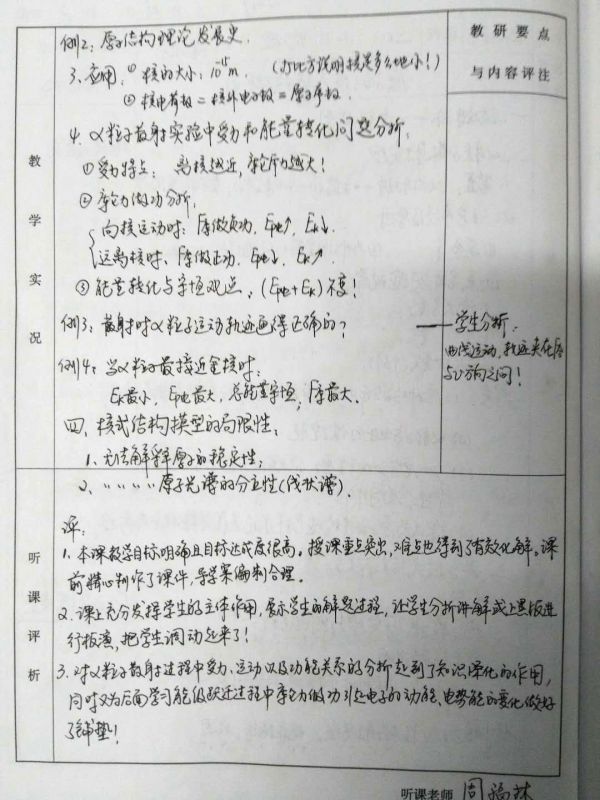 教研要点
与内容评注
教学实况
例2：原子结构理论发展史.
3、应用：①核的大小：10⁻¹⁵m. (打比方说明核是多么地小！)
②核电荷数=核外电子数=原子序数.
4、α粒子散射实验中受力和能量转化问题分析：
①受力特点：离核越近，库仑斥力越大！
②库仑力做功分析：
向核运动时：F库做负功，Epe↑，Ek↓.
远离核时：F库做正功，Epe↓，Ek↗.
③能量转化与守恒观点：(Epe+Ek)不变！
例3：散射时α粒子运动轨迹画得正确的？
——学生分析：
曲线运动，轨迹夹在F库
与v方向之间！
例4：当α粒子最接近金核时：
Ek最小，Epe最大，总能量守恒，F库最大.
四、核式结构模型的局限性：
1、无法解释原子的稳定性；
2、〃〃〃〃原子光谱的分立性(线状谱).
听课评析
评：
1、本课教学目标明确且目标达成度很高。授课重点突出，难点也得到了有效化解。课
前精心制作了课件，导学案编制合理。
2、课上充分发挥学生的主体作用，展示学生的解题过程，让学生分析讲解或上黑板进
行板演，把学生调动起来了！
3、对α粒子散射过程中受力、运动以及功能关系的分析起到了知识深化的作用，
同时又为后面学习能级跃迁过程中库仑力做功引起电子的动能、电势能的变化做好
了铺垫！
听课老师 周福林